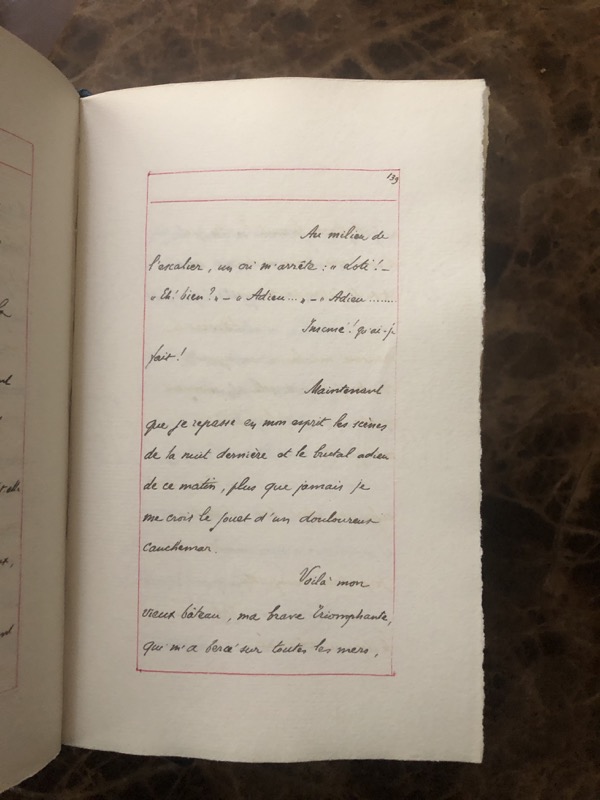 139
Au milieu de
l'escalier, un cri m'arrête : « Loti ! –
« Eh! bien ? » – « Adieu... » – « Adieu .......
Insensé ! qu'ai-je
fait !
Maintenant
que je repasse en mon esprit les scènes
de la nuit dernière et le brutal adieu
de ce matin, plus que jamais je
me crois le jouet d'un douloureux
cauchemar.
Voilà mon
vieux bâteau, ma brave Triomphante,
qui m'a bercé sur toutes les mers,